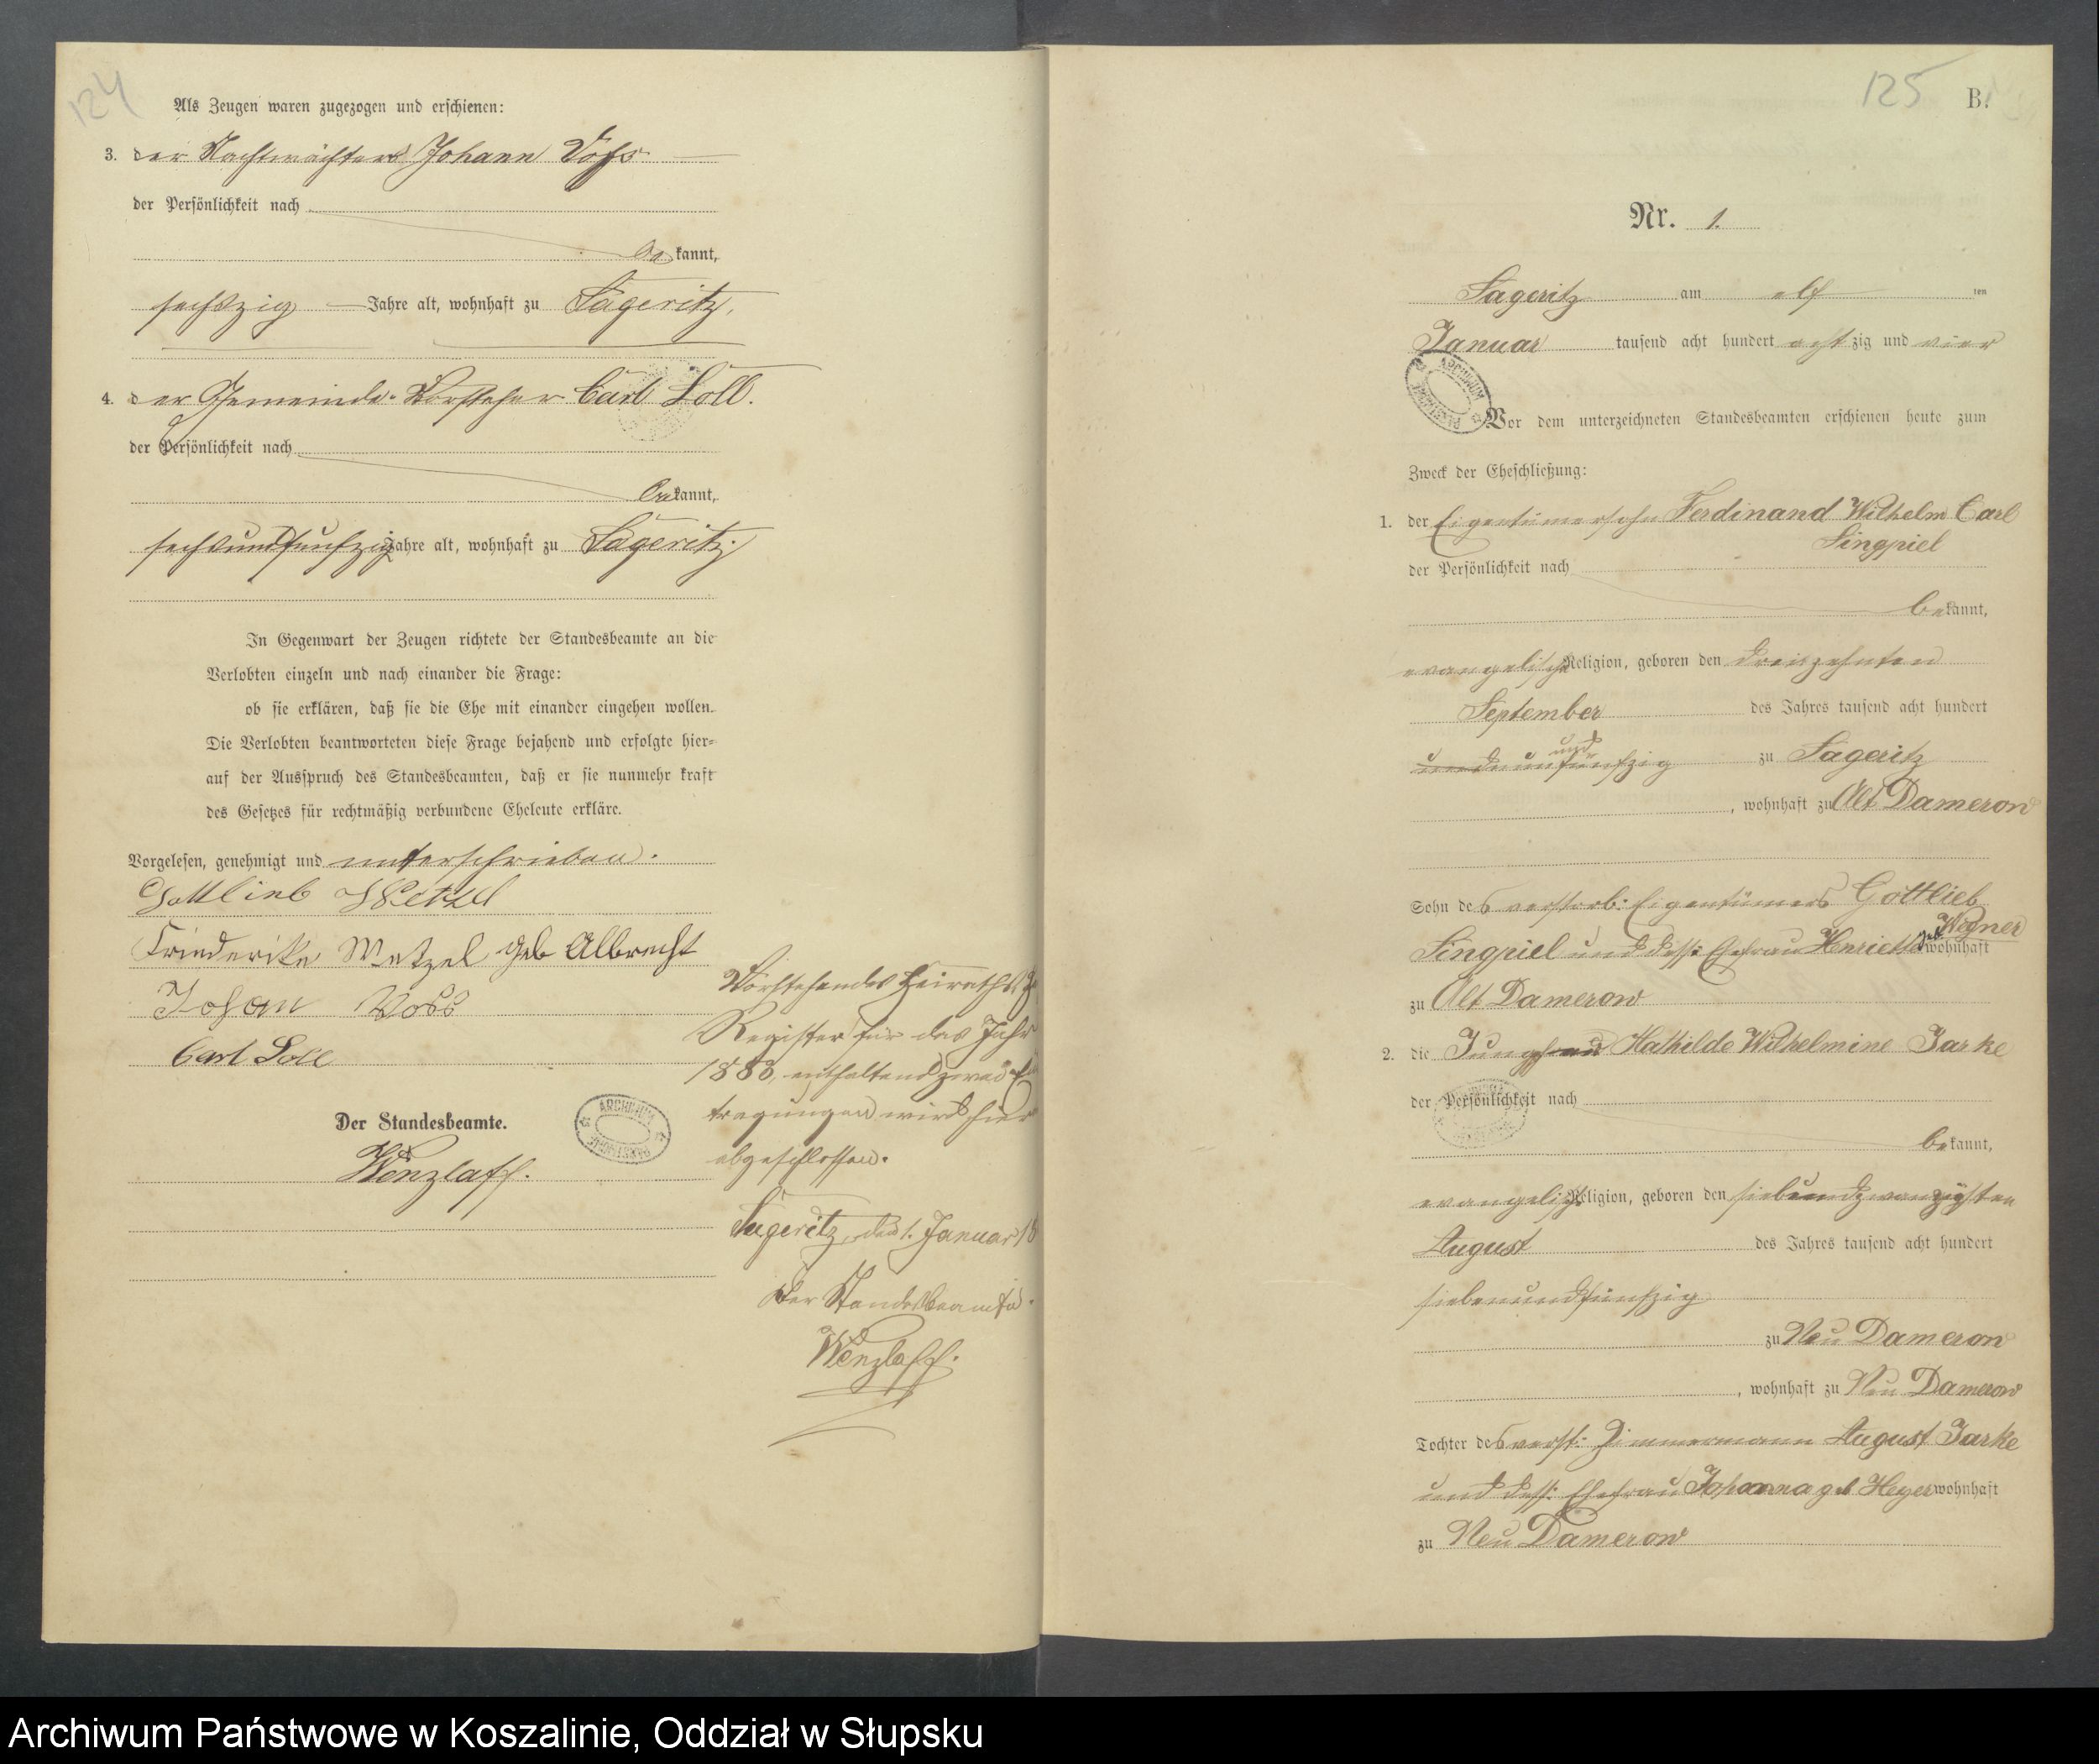 124
Als Zeugen waren zugezogen und erschienen:
3. der Nachtwächter Johann Voß
der Persönlichkeit nach
be kannt,
sechszig Jahre alt, wohnhaft zu Sageritz,
4. der Gemeinde-Vorsteher Carl Soll.
der Persönlichkeit nach
be kannt,
sechsundfünfzig Jahre alt, wohnhaft zu Sageritz.
In Gegenwart der Zeugen richtete der Standesbeamte an die
Verlobten einzeln und nach einander die Frage:
ob sie erklären, daß sie die Ehe mit einander eingehen wollen.
Die Verlobten beantworteten diese Frage bejahend und erfolgte hier-
auf der Ausspruch des Standesbeamten, daß er sie nunmehr kraft
des Gesetzes für rechtmäßig verbundene Eheleute erkläre.
Vorgelesen, genehmigt und unterschrieben.
Gottlieb Metzel
Friederike Metzel geb Albrecht
Johan Voss
Carl Soll
Der Standesbeamte.
Wenzlaff.
Vorstehendes Heiraths-
Register für das Jahr
1883, enthaltend zwei Ein
tragungen wird hier
abgeschlossen.
Sageritz, den 1. Januar 18
Der Standesbeamte.
Wenzlaff.
125 B.
Nr. 1.
Sageritz am elf ten
Januar tausend acht hundert acht zig und vier
Vor dem unterzeichneten Standesbeamten erschienen heute zum
Zweck der Eheschließung:
1. der Eigentümersohn Ferdinand Wilhelm Carl
Singpiel
der Persönlichkeit nach
be kannt,
evangelischer Religion, geboren den dreizehnten
September des Jahres tausend acht hundert
und
neunfünfzig zu Sageritz
, wohnhaft zu Alt Damerow
Sohn des verstorb: Eigentümers Gottlieb
Singpiel und dess: Ehefrau Henriette geb Wegner wohnhaft
zu Alt Damerow
2. die Jungfrau Mathilde Wilhelmine Jarke
der Persönlichkeit nach
be kannt,
evangelischer Religion, geboren den siebundzwanzigsten
August des Jahres tausend acht hundert
siebenundfünfzig
zu Neu Damerow
, wohnhaft zu Neu Damerow
Tochter des verst: Zimmermann August Jarke
und dess: Ehefrau Johanna geb Heyer wohnhaft
zu Neu Damerow
Archiwum Państwowe w Koszalinie, Oddział w Słupsku